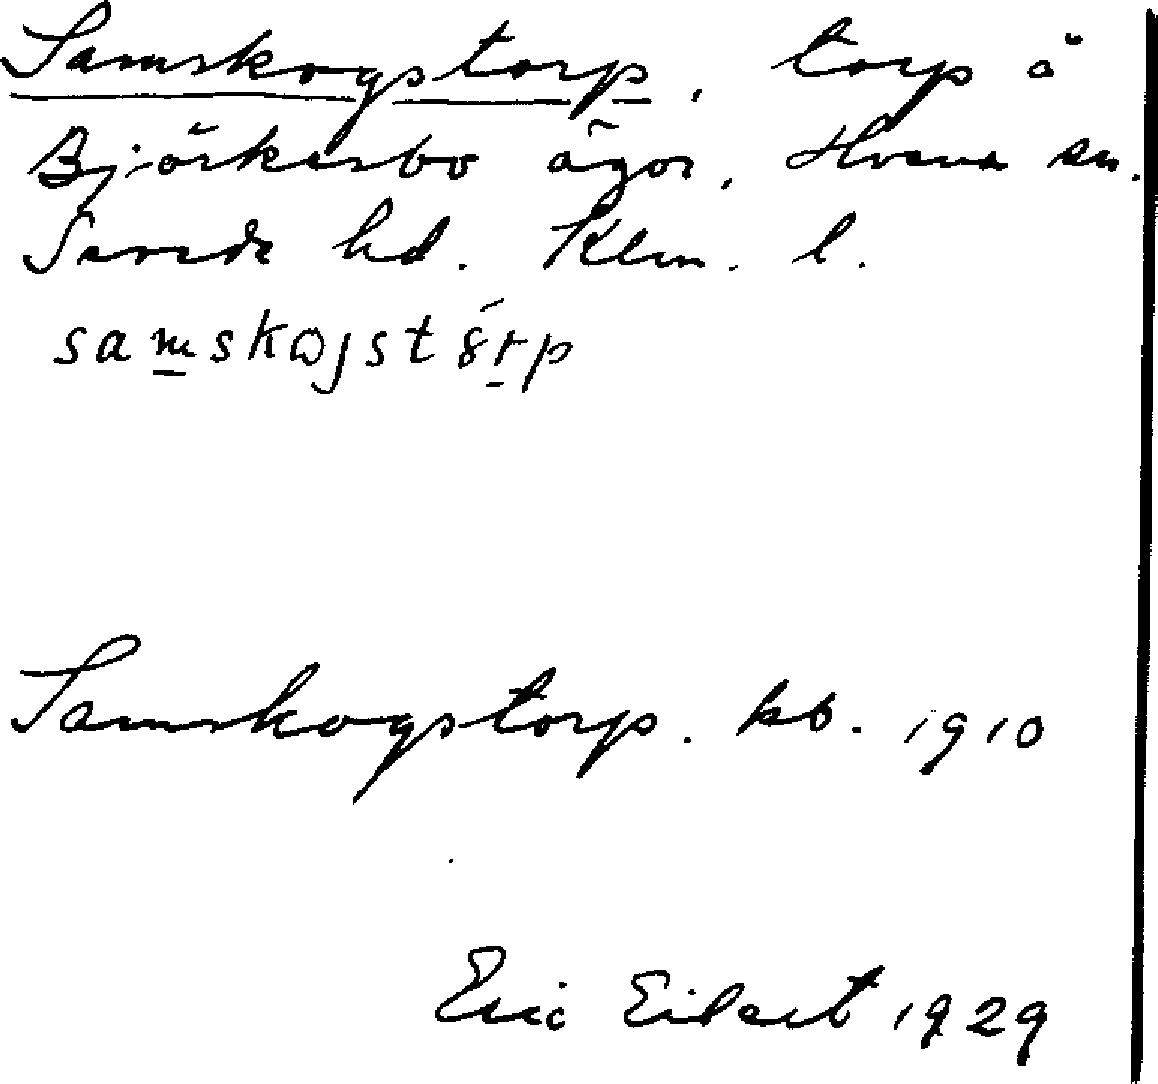 Samskogstorp, torp å
Björkerbo ägor, Hvena sn.
Sevede hd. Klm. l.
samskɷjstȣ́rp
Samskogstorp. kb. 1910
Eric Eilert 1929